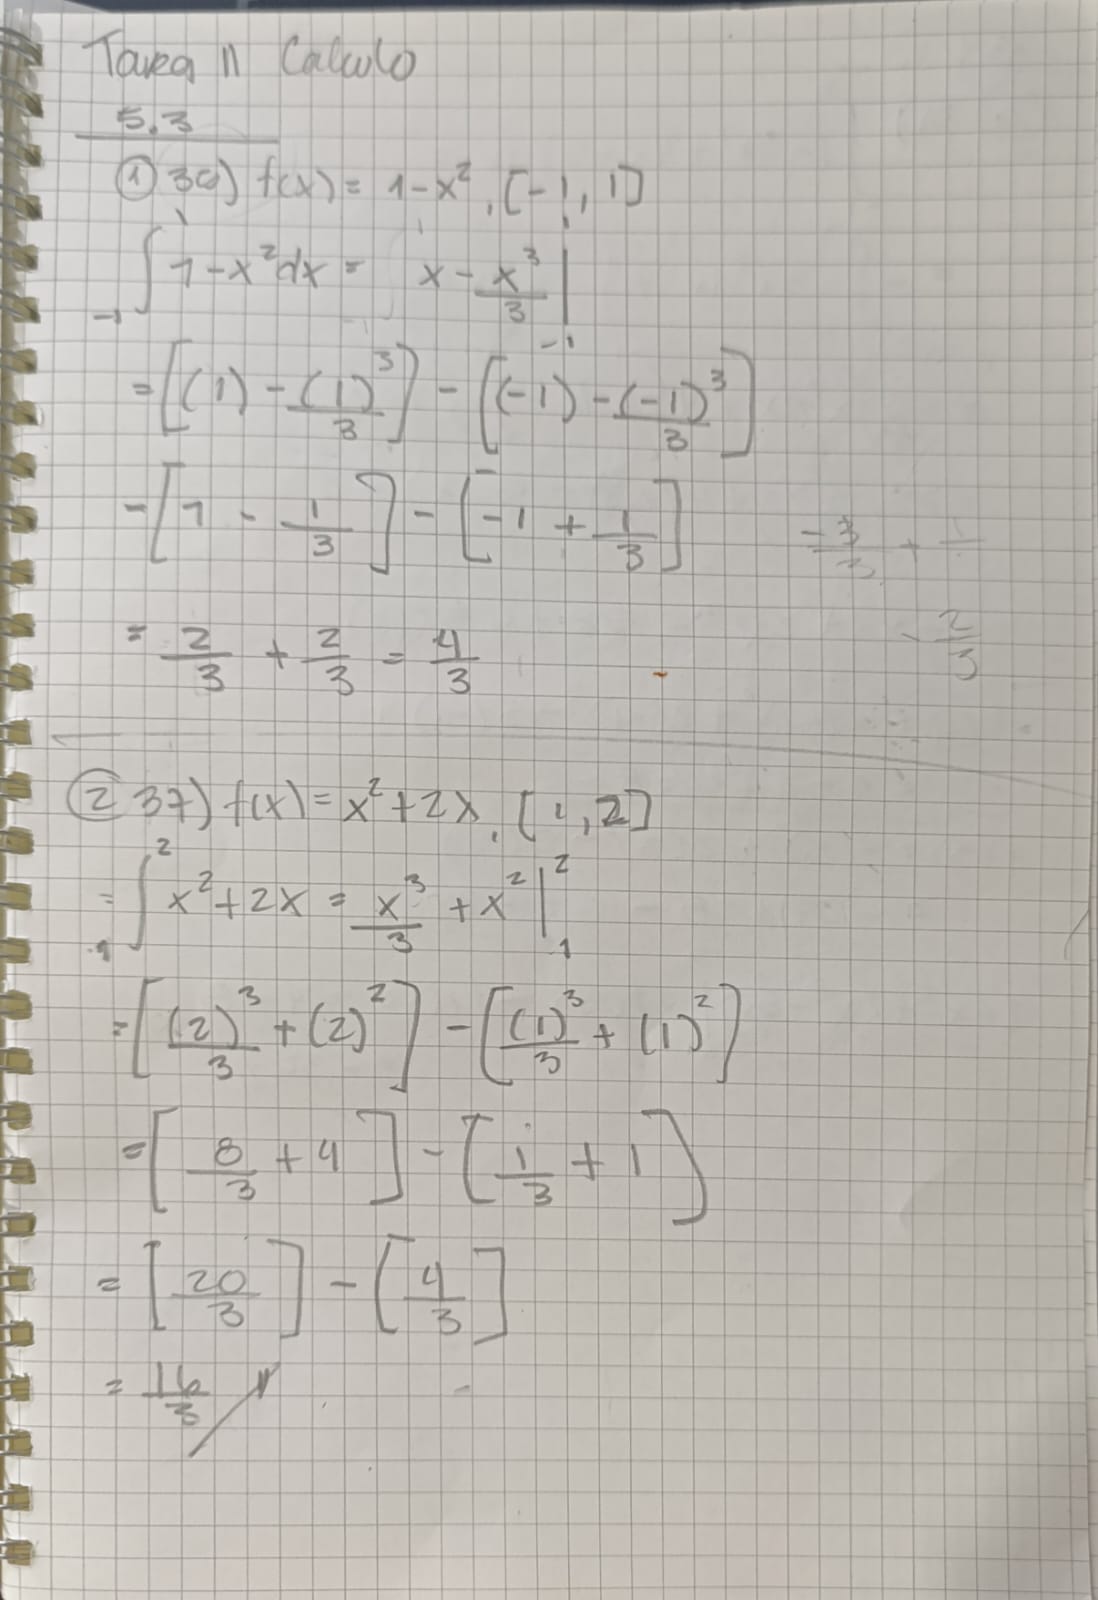 Tarea 11 Calculo
5.3
① 3a) f(x) = 1-x², [-1, 1]
∫₋₁¹ 1-x²dx = x - x³/3 |₋₁¹
= [(1) - (1)³/3] - [(-1) - (-1)³/3]
- [1 - 1/3] - [-1 + 1/3]
-3/3 +
= 2/3 + 2/3 = 4/3
- 2/3
② 37) f(x) = x²+2x, [1,2]
= ∫₁² x²+2x = x³/3 + x² |₁²
= [(2)³/3 + (2)²] - [(1)³/3 + (1)²]
= [8/3 + 4] - [1/3 + 1]
= [20/3] - [4/3]
= 16/3